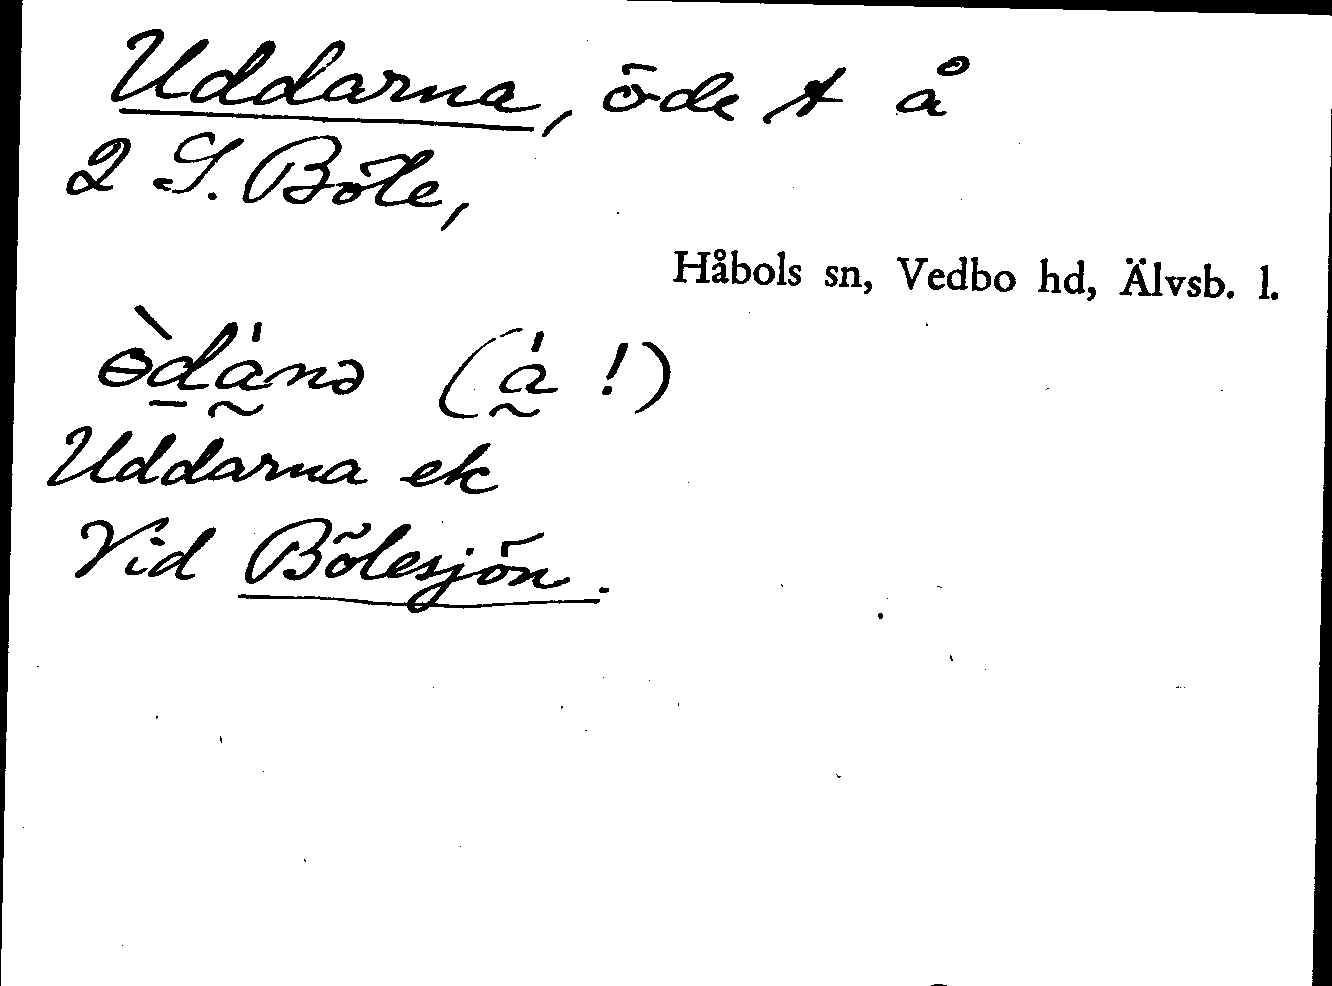 Uddarna, öde t å
2 S. Böle,
Håbols sn, Vedbo hd, Älvsb. l.
ɵ̀da̰̍nə (a̰̍ !)
Uddarna ek
Vid Bölesjön.